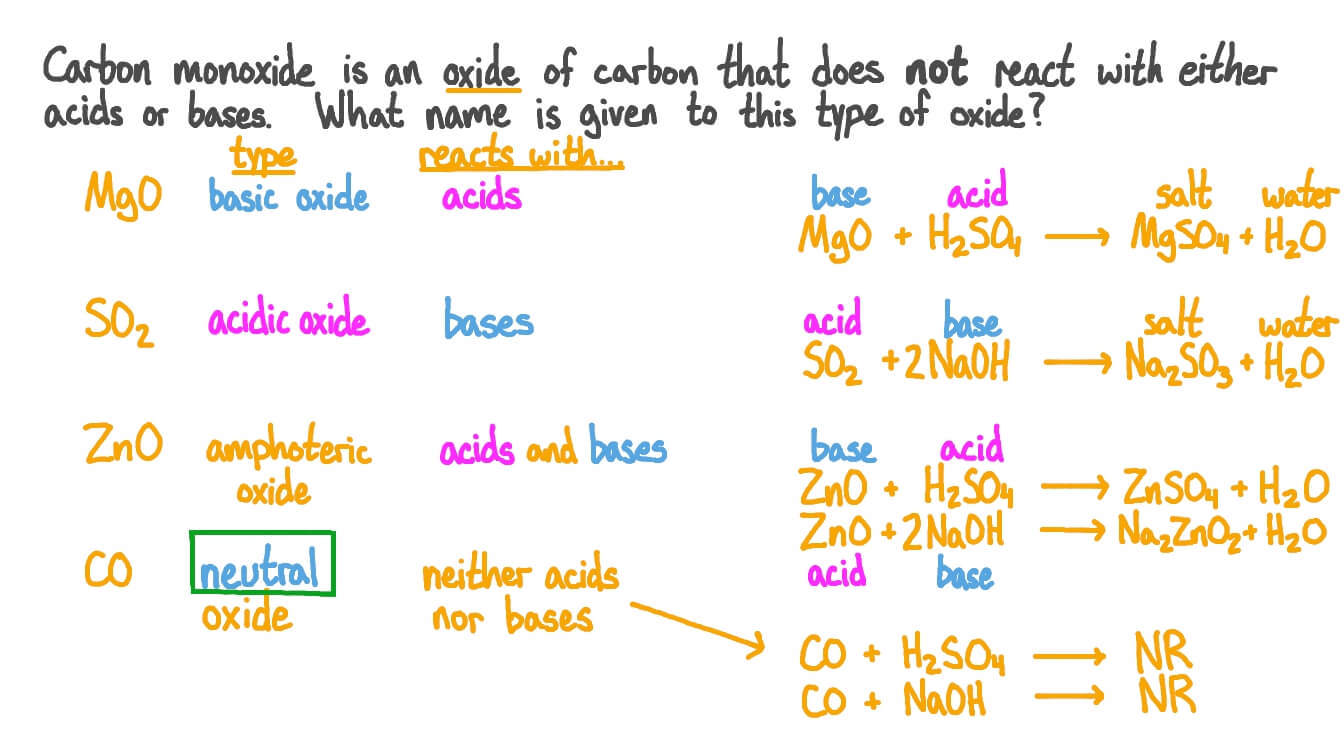 Carbon monoxide is an oxide of carbon that does not react with either
acids or bases. What name is given to this type of oxide?
type reacts with...
MgO basic oxide acids
base acid salt water
MgO + H₂SO₄ ⟶ MgSO₄ + H₂O
SO₂ acidic oxide bases
acid base salt water
SO₂ + 2NaOH ⟶ Na₂SO₃ + H₂O
ZnO amphoteric acids and bases
oxide
base acid
ZnO + H₂SO₄ ⟶ ZnSO₄ + H₂O
ZnO + 2NaOH ⟶ Na₂ZnO₂ + H₂O
acid base
CO neutral neither acids
oxide nor bases
CO + H₂SO₄ ⟶ NR
CO + NaOH ⟶ NR